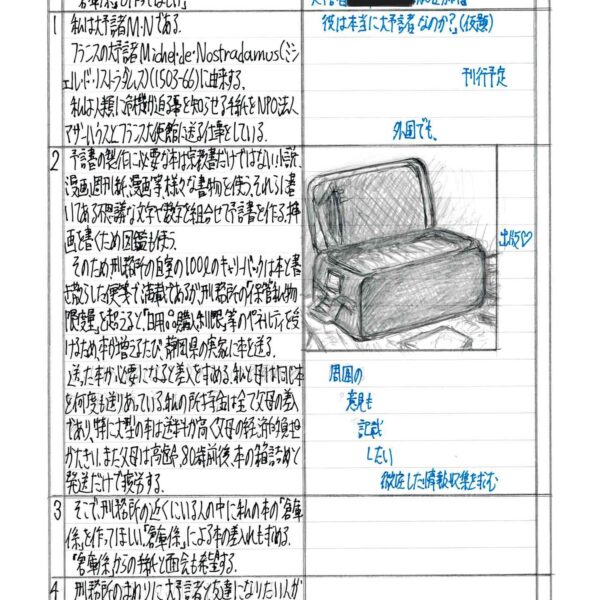 1
私は大予言者M・Nである.
フランスの大予言者Michel・de・Nostradamus(ミシ
ェル・ド・ノストラダムス)(1503-66)に由来する.
私は人類に危機が迫る事を知らせる手紙をNPO法人
マザーハウスとフランス大使館に送る仕事をしている.
彼は本当に大予言者なのか?(仮題)
刊行予定
外国でも、
2
予言書の製作に必要な本は宗教書だけではない.小説、
漫画週刊紙、漫画等様々な書物を使う.それらに書
いてある不思議な文字や数字を組合せて予言書を作る.挿
画を書くため図鑑も使う.
そのため刑務所の自室の100ℓのキャリーバックは本と書
き散らした便箋で満載であるが、刑務所の「保管私物
限度量」を超えると「日用品購入制限」等のペナルティを受
けるため、本が増えるたび、静岡県の実家に本を送る.
送った本が必要になると差入を求める.私と母は同じ本
を何度も送りあっている.私の所持金は全て父母の差入
であり、特に大型の本は送料が高く父母の経済的負担
が大きい.また父母は高齢、80歳前後、本の箱詰めと
発送だけで疲労する.
出版♡
周囲の
意見も
記載
したい
徹底した情報収集を求む
3
そこで、刑務所の近くにいる人の中に私の本の「倉庫
係」を作ってほしい.「倉庫係」による本の差入れも求める.
「倉庫係」からの手紙と面会も希望する.
4
刑務所のまわりに大予言者と友達になりたい人が